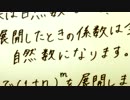 は自然数
展開したときの係数は
自然数になります。
(1+n)^m を展開しま